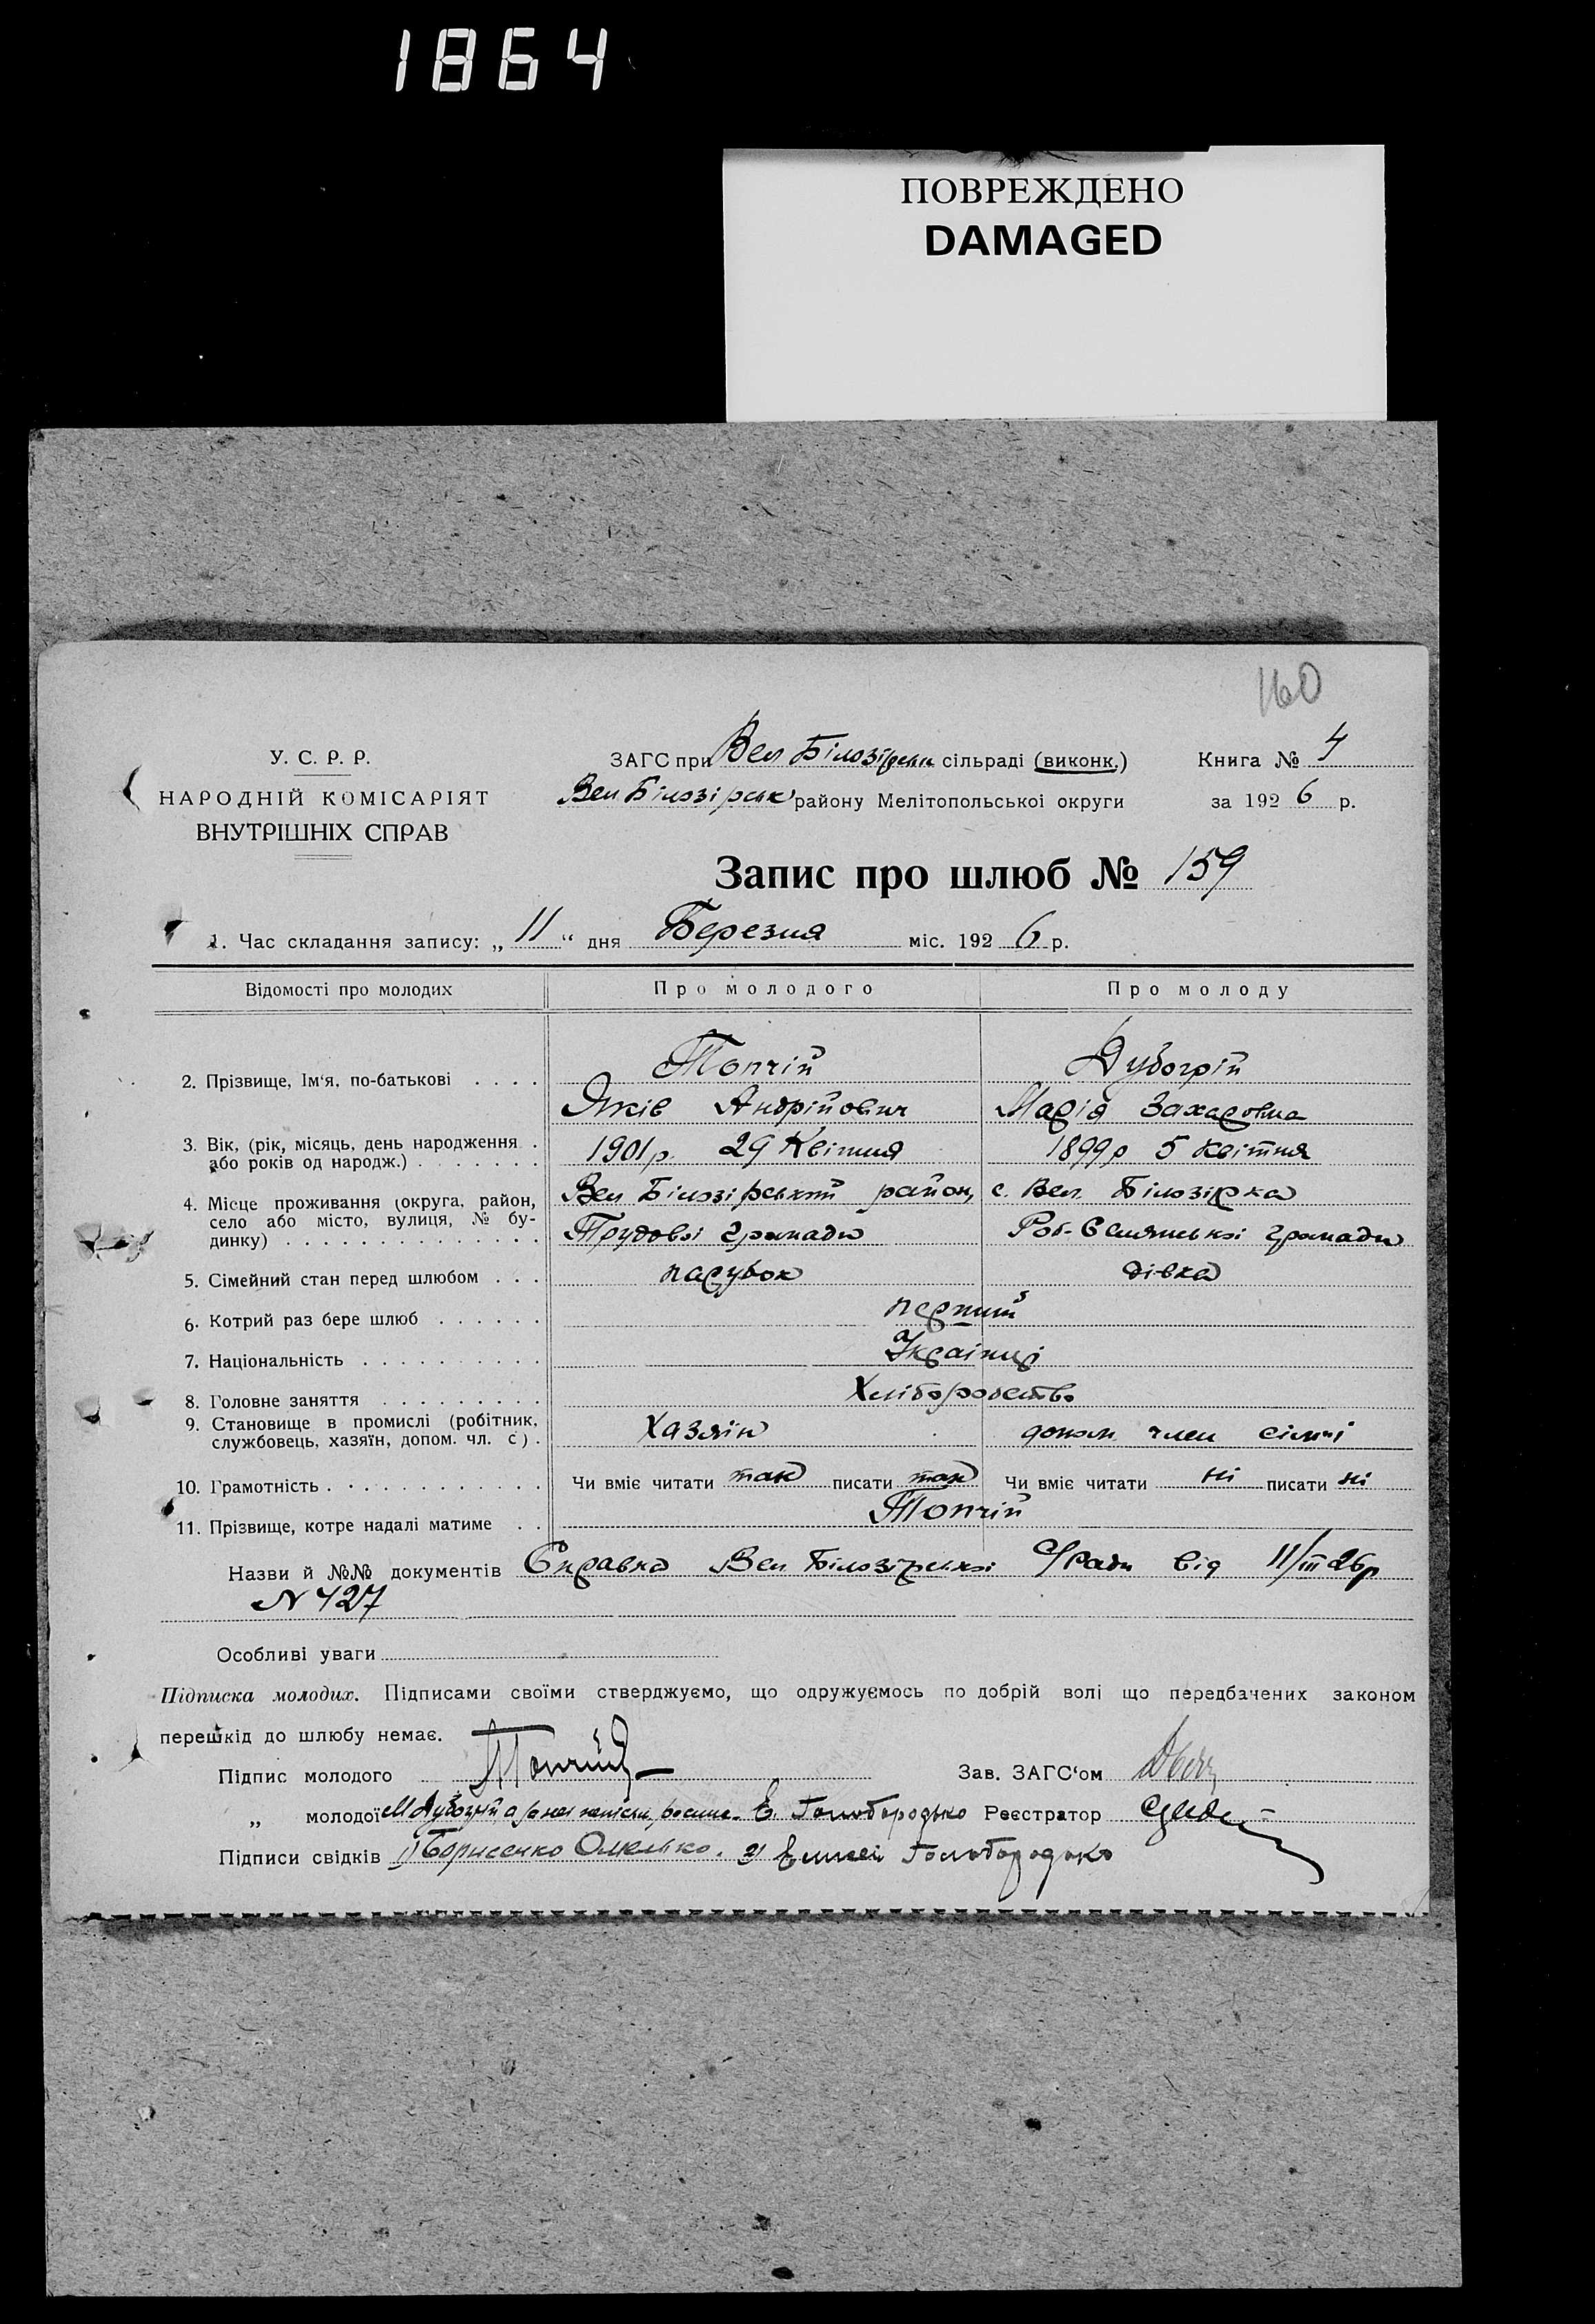 1864
ПОВРЕЖДЕНО
DAMAGED
160
У. С. Р. Р.
НАРОДНІЙ КОМІСАРІЯТ
ВНУТРІШНІХ СПРАВ
ЗАГС при Вел Білозірськ сільраді (виконк.)
Вел Білозірськ району Мелітопольської округи
Книга № 4
за 1926 р.
Запис про шлюб № 159
1. Час складання запису: „11“ дня Березня міс. 1926 р.
Відомості про молодих Про молодого Про молоду
Топчій Дубогрій
2. Прізвище, Ім‘я, по-батькові . . . .
Яків Андрійович Марія Захаровна
3. Вік, (рік, місяць, день народження . 1901 р. 29 Квітня 1899 р 5 Квітня
або років од народж.) . . . . . . .
4. Місце проживання (округа, район, Вел Білозірський район, с. Вел. Білозірка
село або місто, вулиця, № бу-
динку) . . . . . . . . . . . . . . Трудової громади Роб-Селянської громади
5. Сімейний стан перед шлюбом . . . парубок дівка
6. Котрий раз бере шлюб . . . . . . перший
7. Національність . . . . . . . . . . Українці
8. Головне заняття . . . . . . . . . Хліборобство
9. Становище в промислі (робітник,
службовець, хазяїн, допом. чл. с ) . Хазяїн допом. член сімї
10. Грамотність . . . . . . . . . . . . Чи вміє читати так писати так Чи вміє читати ні писати ні
11. Прізвище, котре надалі матиме . . Топчій
Назви й №№ документів Справка Вел Білозірської С/Ради від 11/III 26р
N 427
Особливі уваги
Підписка молодих. Підписами своїми стверджуємо, що одружуємось по добрій волі що передбачених законом
перешкід до шлюбу немає.
Підпис молодого Топчій Зав. ЗАГС‘ом
„ молодої М Дубогрій, а за неї Е. Голобородько Реєстратор
Підписи свідків 1) Борисенко Омелько. 2) Голобородько